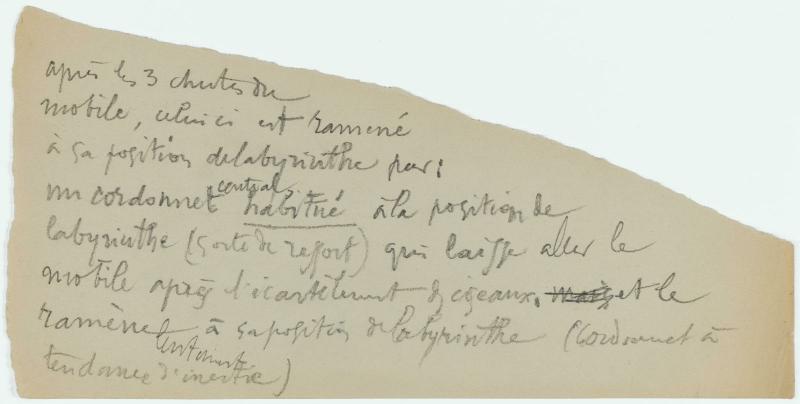 après les 3 chutes du
mobile, celui ci est ramené
à sa position de labyrinthe par:
un cordonnet central habitué à la position de
labyrinthe (sorte de ressort) qui laisse aller le
mobile après l'écartèlement d ciseaux. mais et le
ramène lentement à sa position de labyrinthe (Cordonnet à
tendance d'inertie)